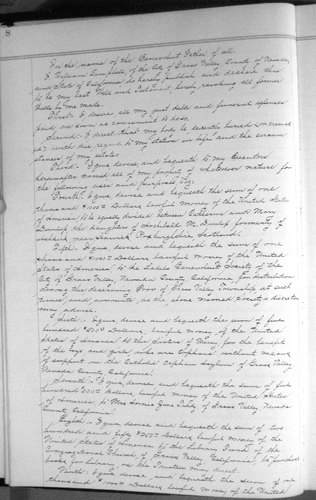 8
In the name of the Benevolent Father of all.
I, William Campbell, of the City of Grass Valley, County of Nevada,
and State of California do hereby publish and declare this
to be my Last Will and Testament hereby revoking all former
Wills by me made.
First: I desire all my just debts and funeral expenses
paid as soon as convenient to do so.
Second: I direct that my body be decently buried or
with due regard to my station in life and the circum
stances of my estate.
Third: I give devise and bequeath to my Executors
hereinafter named all of my property of whatsoever nature for
the following uses and purposes, viz:
Fourth: I give devise and bequeath the sum of one
thousand Dollars, lawful money of the United States
of America to be equally divided between Catherine and Mary
Dunlop the daughters of Archibald M. Dunlop formerly of
near Scotland.
Fifth: I give devise and bequeath the sum of one
thousand Dollars, lawful money of the United
States of America to the Ladies Benevolent Society of the
City of Grass Valley, Nevada County, California for distribution
among the deserving Poor of Grass Valley Township at such
times, and amounts, as the above named Society's discretion
may advise.
Sixth: I give devise and bequeath the sum of five
hundred Dollars, lawful money of the United
States of America to the Sisters of Mercy, for the benefit
of the boys and girls who are Orphans without means
of support in the Catholic Orphan Asylum of Grass Valley
Nevada County, California.
Seventh: I give, devise and bequeath the sum of five
hundred Dollars, lawful money of the United States
of America to Mrs. of Grass Valley, Nevada
County, California.
Eighth: I give, devise and bequeath the sum of two
hundred and fifty Dollars, lawful money of the
United States of America to the Library Fund of the
Congregational Church of Grass Valley California, to purchase
books for Library as the Trustees may direct.
Ninth: I give devise and bequeath the sum of one
thousand Dollars lawful money of the United